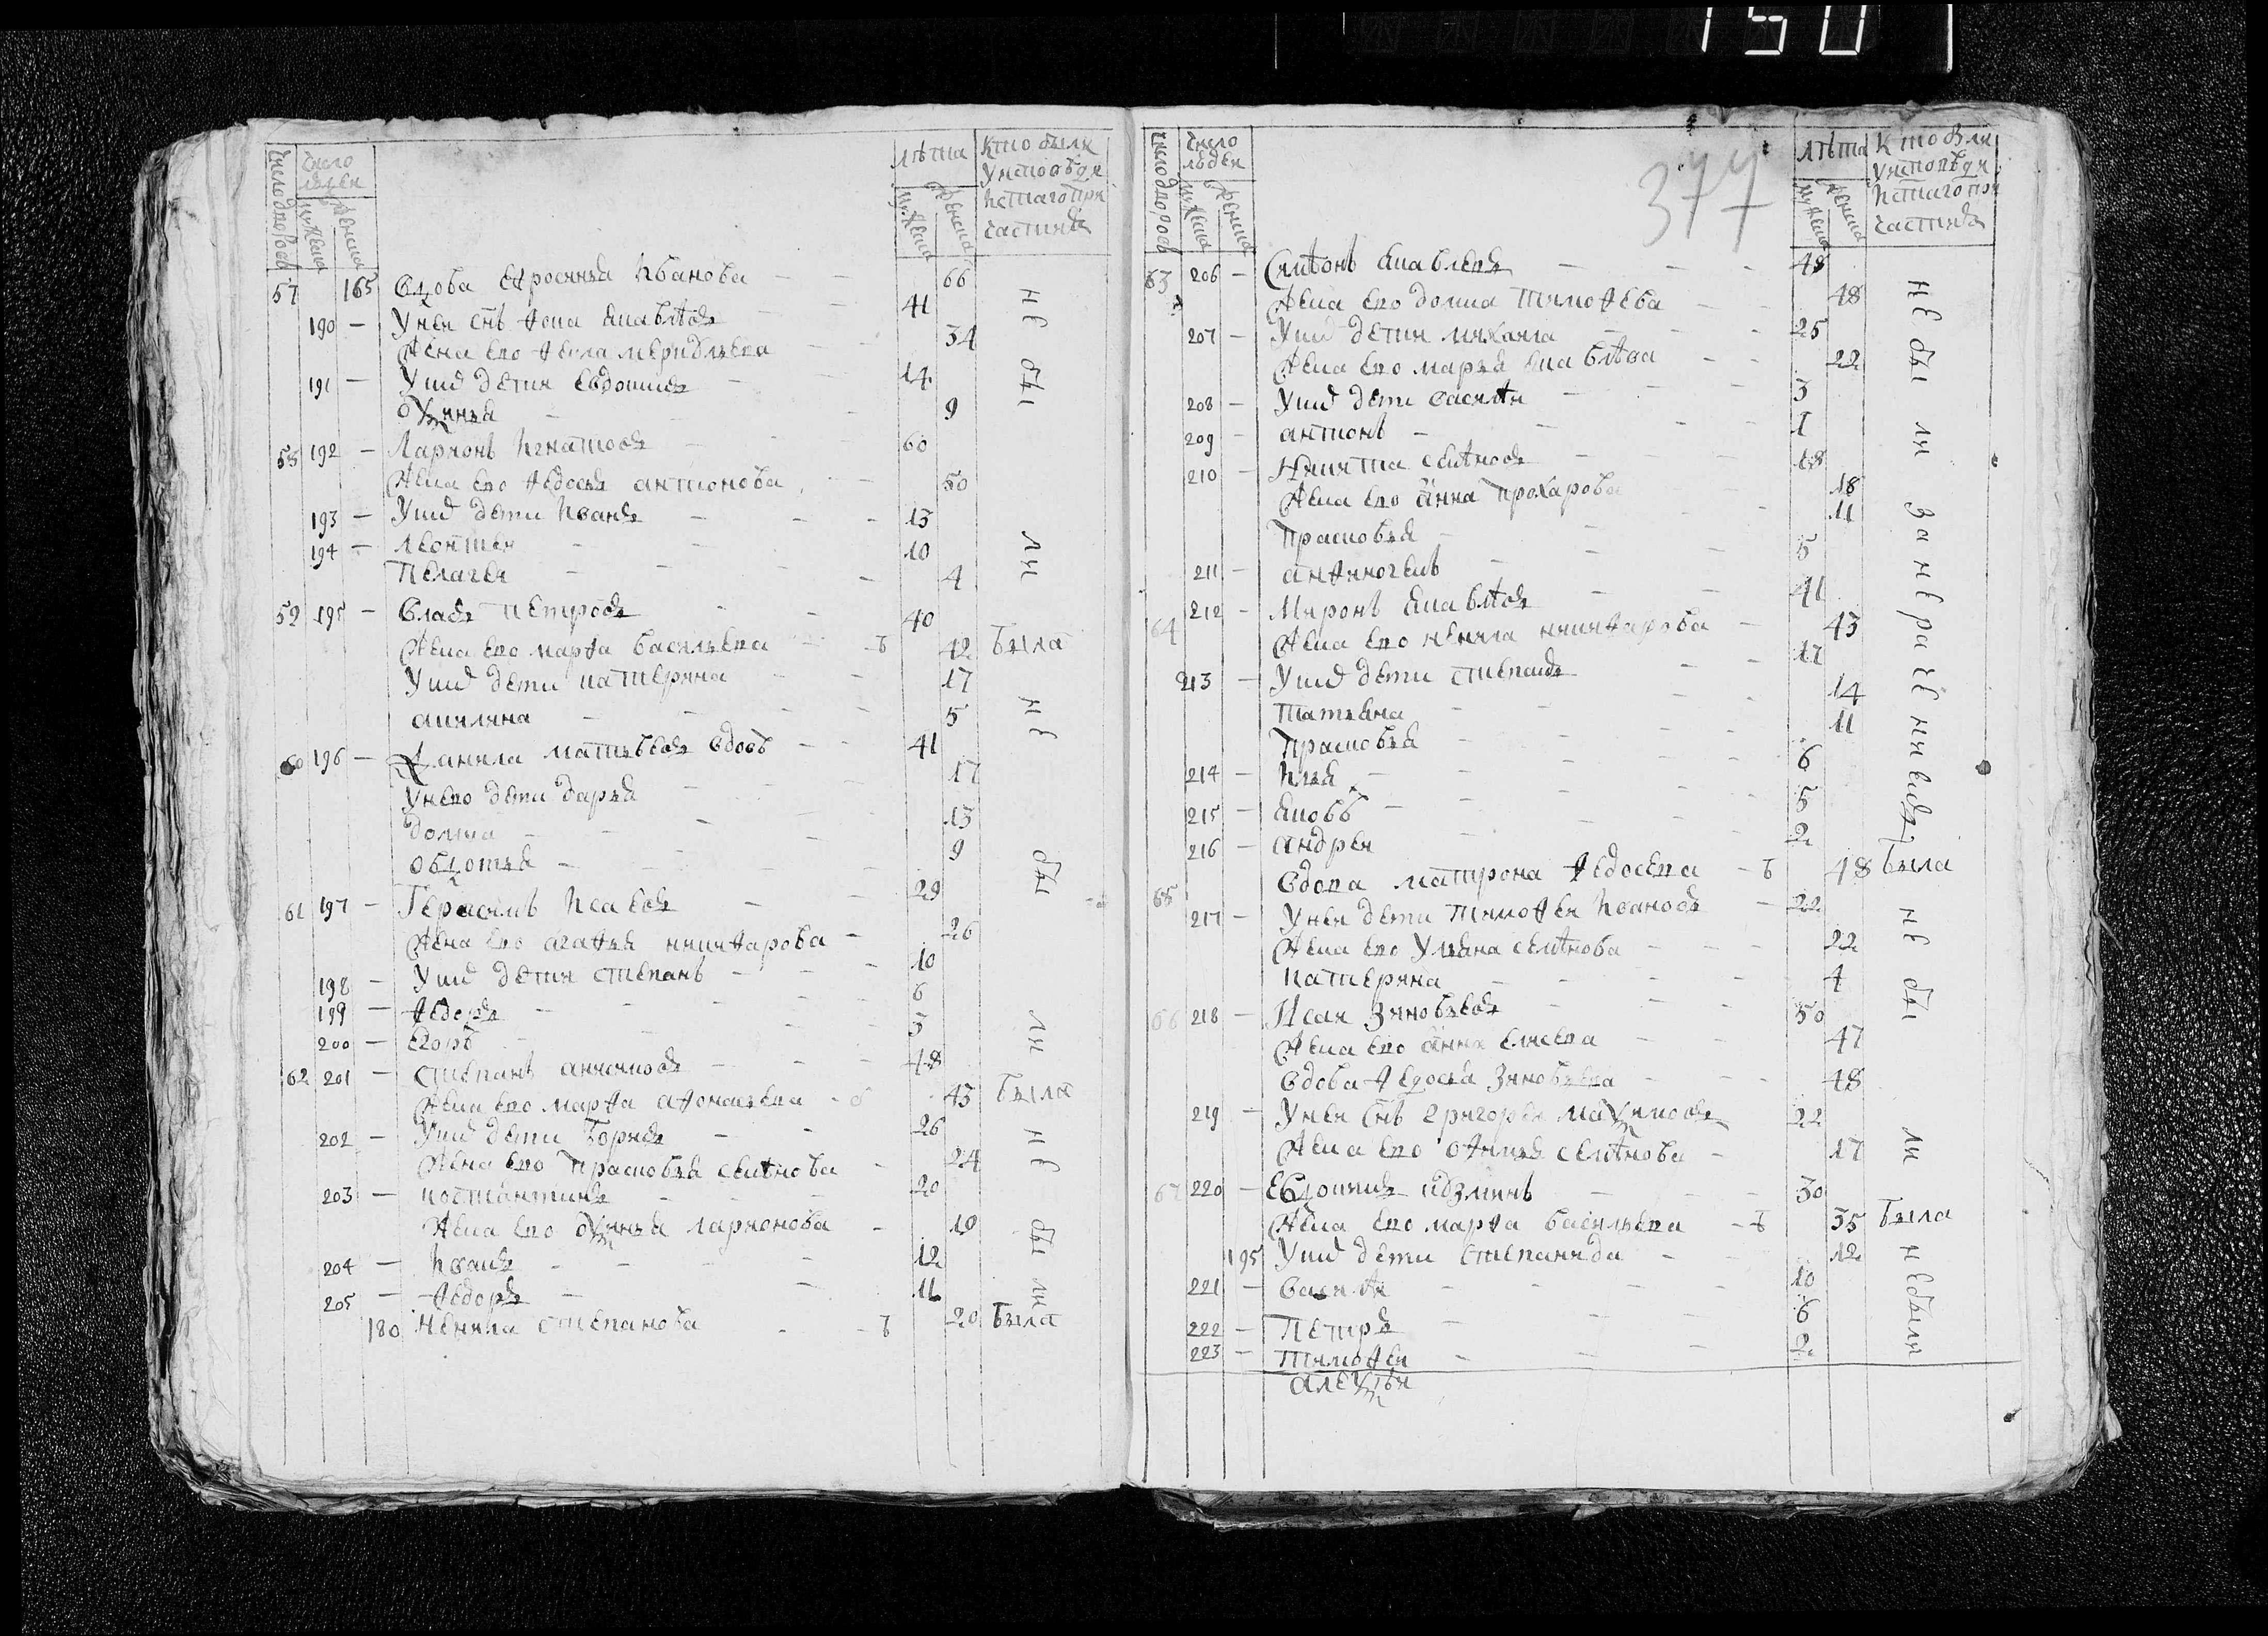 150
число дворовъ
число людеи
мужеска
женска
лѣта
мужеска
женска
кто были
у исповѣди
и стаго при
частия
57 165 Вдова Ефросинья Иванова 66
190 У неи снъ Фока Яковлѣвъ 41
Жена ево Фекла 34
191 У них дети Евдокимъ 14
Дукинья 9
58 192 Ларионъ Игнатовъ 60
Жена ево Федосья антионова 50
193 У них дети Иванъ 13
194 Леонтеи 10
Пелагея 4
59 195 Власъ Петровъ 40
Жена ево марфа васильева 42 была
У них дети катерина 17
акилина 5
60 196 Данила матвѣевъ вдовъ 41
У нево дети дарья 17
домна 13
9
61 197 Герасимъ Исаевъ 29
Жена ево агафья никифорова 26
198 У них дети степанъ 10
199 Федоръ 6
200 Егоръ 3
62 201 степанъ 48
Жена ево марфа афонасьева 43 была
202 У них дети Борисъ 26
Жена ево Прасковья семѣнова 24
203 костантинъ 20
Жена ево ларионова 19
204 Иванъ 12
205 Федоръ 11
180 Ненила степанова 20 была
не бы ли не бы ли не бы ли
377
число дворовъ
число людеи
мужеска
женска
лѣта
мужеска
женска
кто были
у исповѣди
и стаго при
частия
63 206 Симѣонъ Яковлевъ 48
Жена ево домна тимофева 48
207 У них дети михаила 25
Жена ево марья яковлѣва 22
208 У них дети василѣи 3
209 антионъ 1
210 Никита семѣновъ 18
Жена ево анна прохарова 18
Прасковья 11
211 анфиногенъ 5
64 212 Миронъ Яковлѣвъ 41
Жена ево ненила никифарова 43
213 У них дети степанъ 17
Татьяна 14
Прасковья 11
214 Илья 6
215 Яковъ 5
216 андреи 2
65 вдова матрона Федосева 48 была
217 У неи дети тимофеи Ивановъ 22
Жена ево Ульяна семѣнова 22
катерина 4
66 218 Исаи Зиновьевъ 50
Жена ево анна елисева 47
вдова Федосья Зиновьева 48
219 У неи снъ григореи Максимовъ 22
Жена ево офимья семѣнова 17
67 220 Евдокимъ козминъ 30
Жена ево марфа васильева 35 была
195 У них дети степанида 12
221 василѣи 10
222 Петръ 6
223 тимофеи 2
алексѣи
не бы ли за нерачениемъ
не бы ли
не были